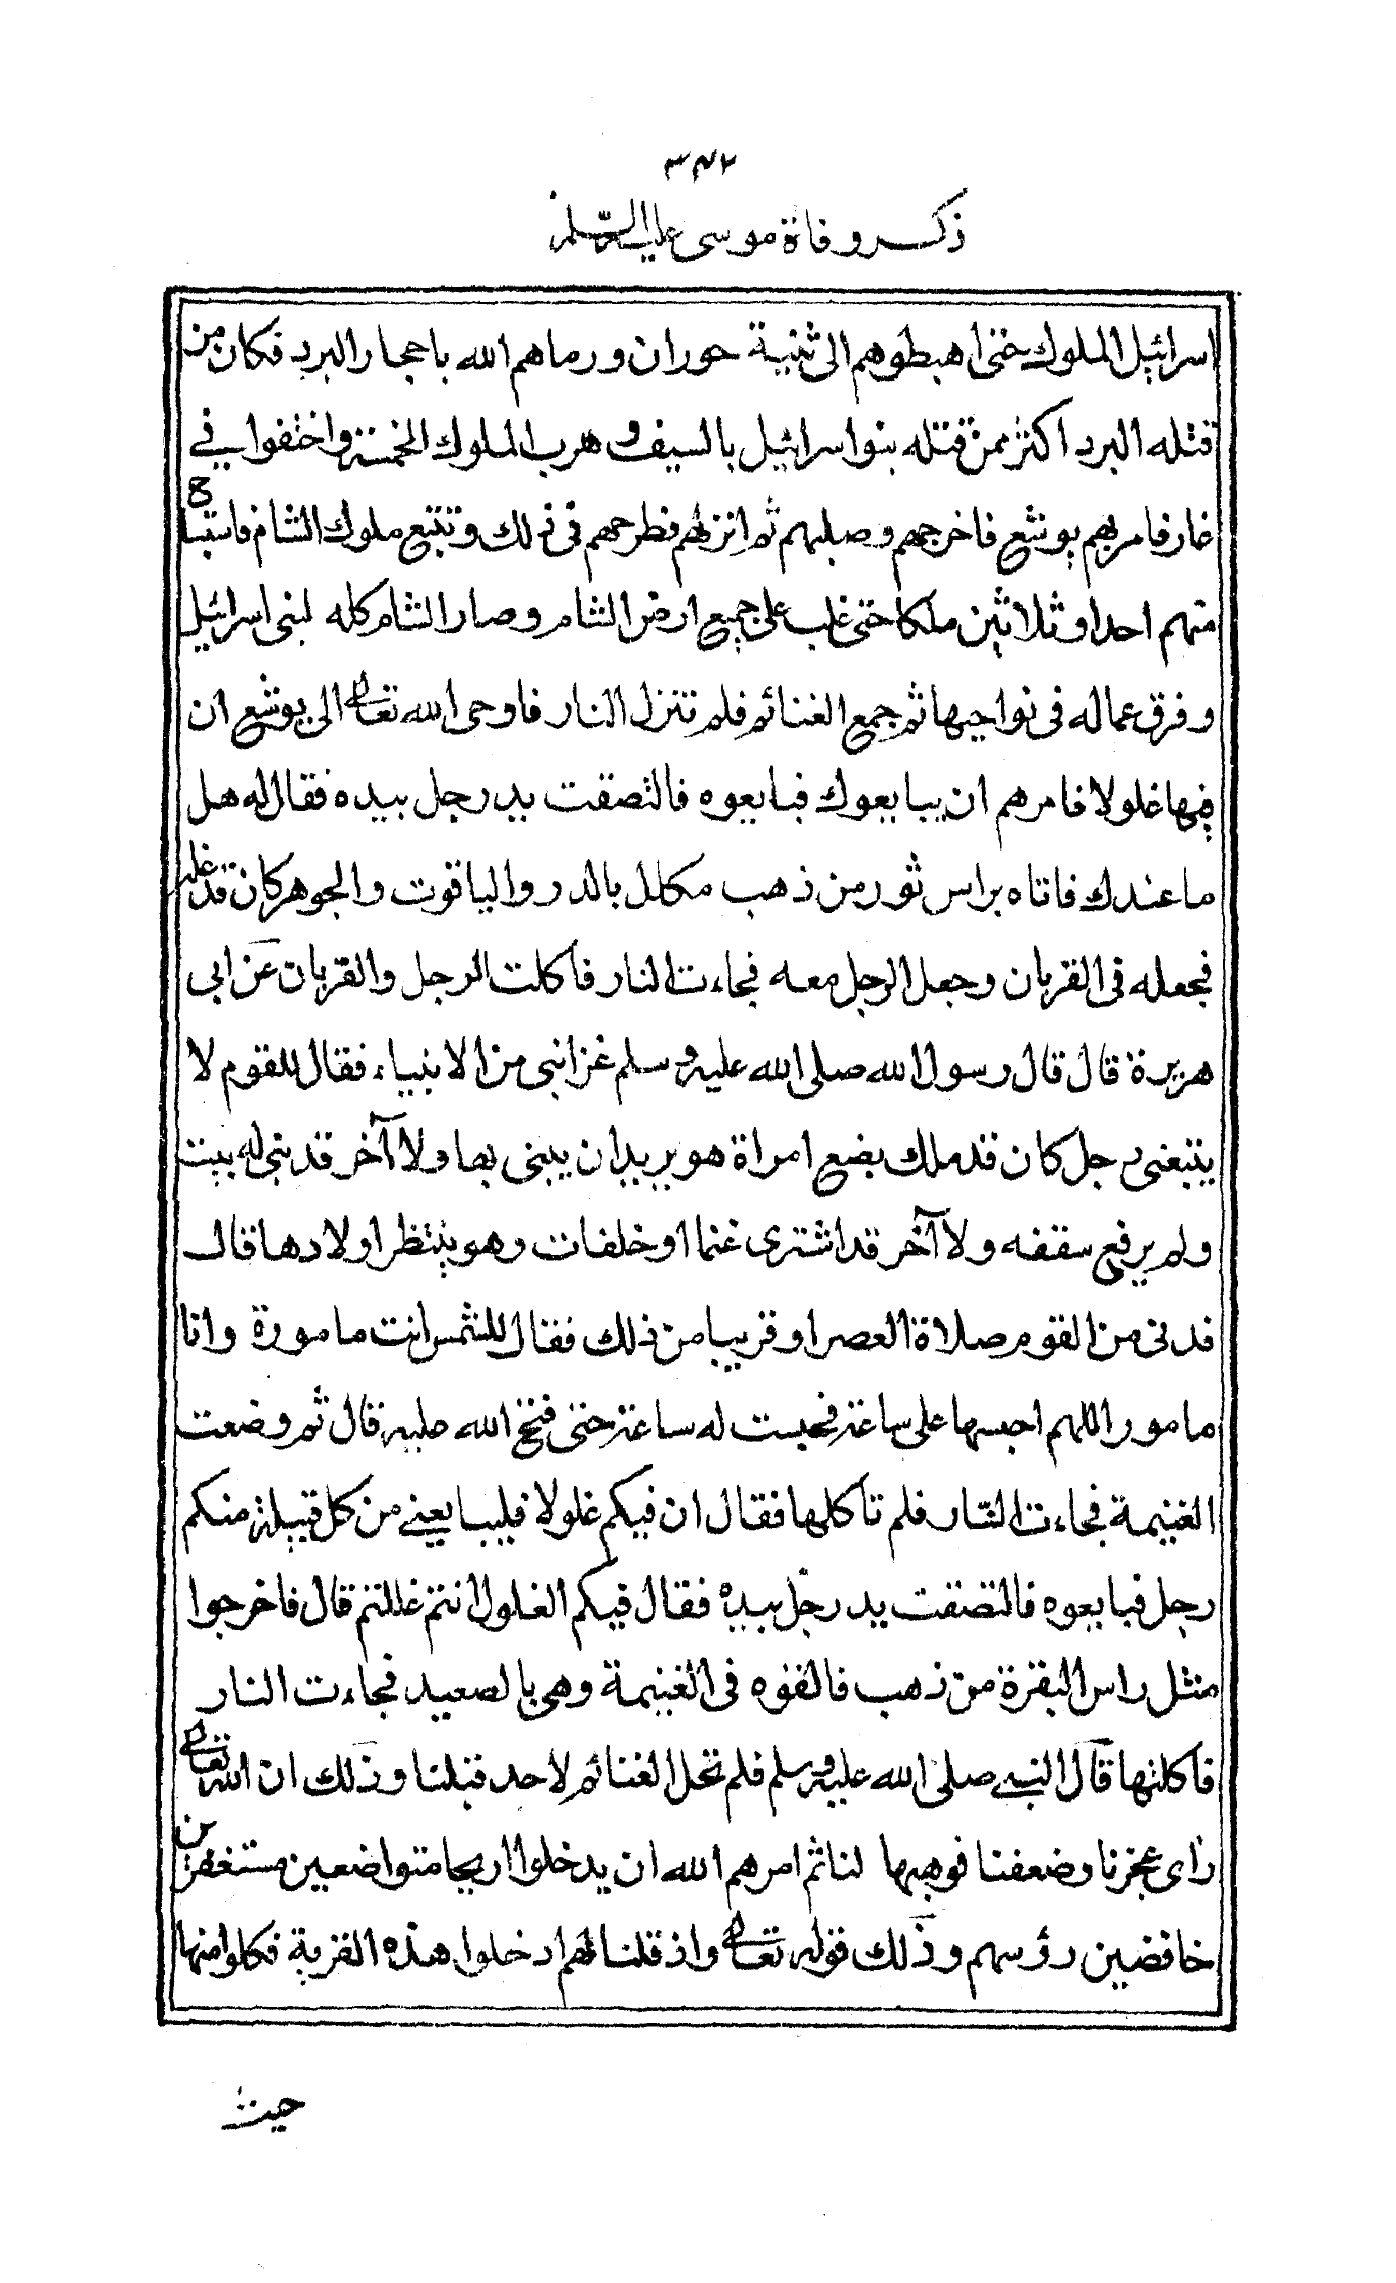 ٣٤٢
ذكر وفاة موسى عليه السلام
اسرائيل الملوك حتى اهبطوهم الى ثنية حوران ورماهم الله باحجار البرد فكان من
قتله البرد اكثر ممن قتله بنو اسرائيل بالسيف وهرب الملوك الخمسة واختفوا في
غار فامر بهم يوشع فاخرجهم وصلبهم ثم انزلهم فطرحهم في ذلك وتتبع ملوك الشام فاستباح
منهم احدا وثلاثين ملكا حتى غلب على جميع ارض الشام وصار الشام كله لبنى اسرائيل
وفرق عماله في نواحيها ثم جمع الغنائم فلم تنزل النار فاوحى الله تعالى الى يوشع ان
فيها غلولا فامرهم ان يبايعوك فبايعوه فالتصقت يد رجل بيده فقال له هل
ما عندك فاتاه براس ثور من ذهب مكلل بالدر والياقوت والجوهر كان قد غله
فجعله في القربان وجعل الرجل معه فجاءت النار فاكلت الرجل والقربان عن ابى
هريرة قال قال رسول الله صلى الله عليه وسلم غزا نبى من الانبياء فقال للقوم لا
يتبعنى رجل كان قد ملك بضع امراة هو يريد ان يبنى بها ولا آخر قد بنى له بيت
ولم يرفع سقفه ولا آخر قد اشترى غنما او خلفات وهو ينتظر اولادها قال
فدنى من القوم صلاة العصر او قريبا من ذلك فقال للشمس انت مامورة وانا
مامور اللهم احبسها على ساعة فحبست له ساعة حتى فتح الله عليه قال ثم وضعت
الغنيمة فجاءت النار فلم تأكلها فقال ان فيكم غلولا فليبايعنى من كل قبيلة منكم
رجل فبايعوه فالتصقت يد رجل بيده فقال فيكم الغلول انتم غللتم قال فاخرجوا
مثل راس البقرة من ذهب فالقوه في الغنيمة وهى بالصعيد فجاءت النار
فاكلتها قال النبي صلى الله عليه وسلم فلم تحل الغنائم لاحد قبلنا وذلك ان الله تعالى
راى عجزنا وضعفنا فوهبها لنا ثم امرهم الله ان يدخلوا اريحا متواضعين مستغفرين
خافضين رؤسهم وذلك قوله تعالى واذ قلنا لهم ادخلوا هذه القرية فكلوا منها
حيث